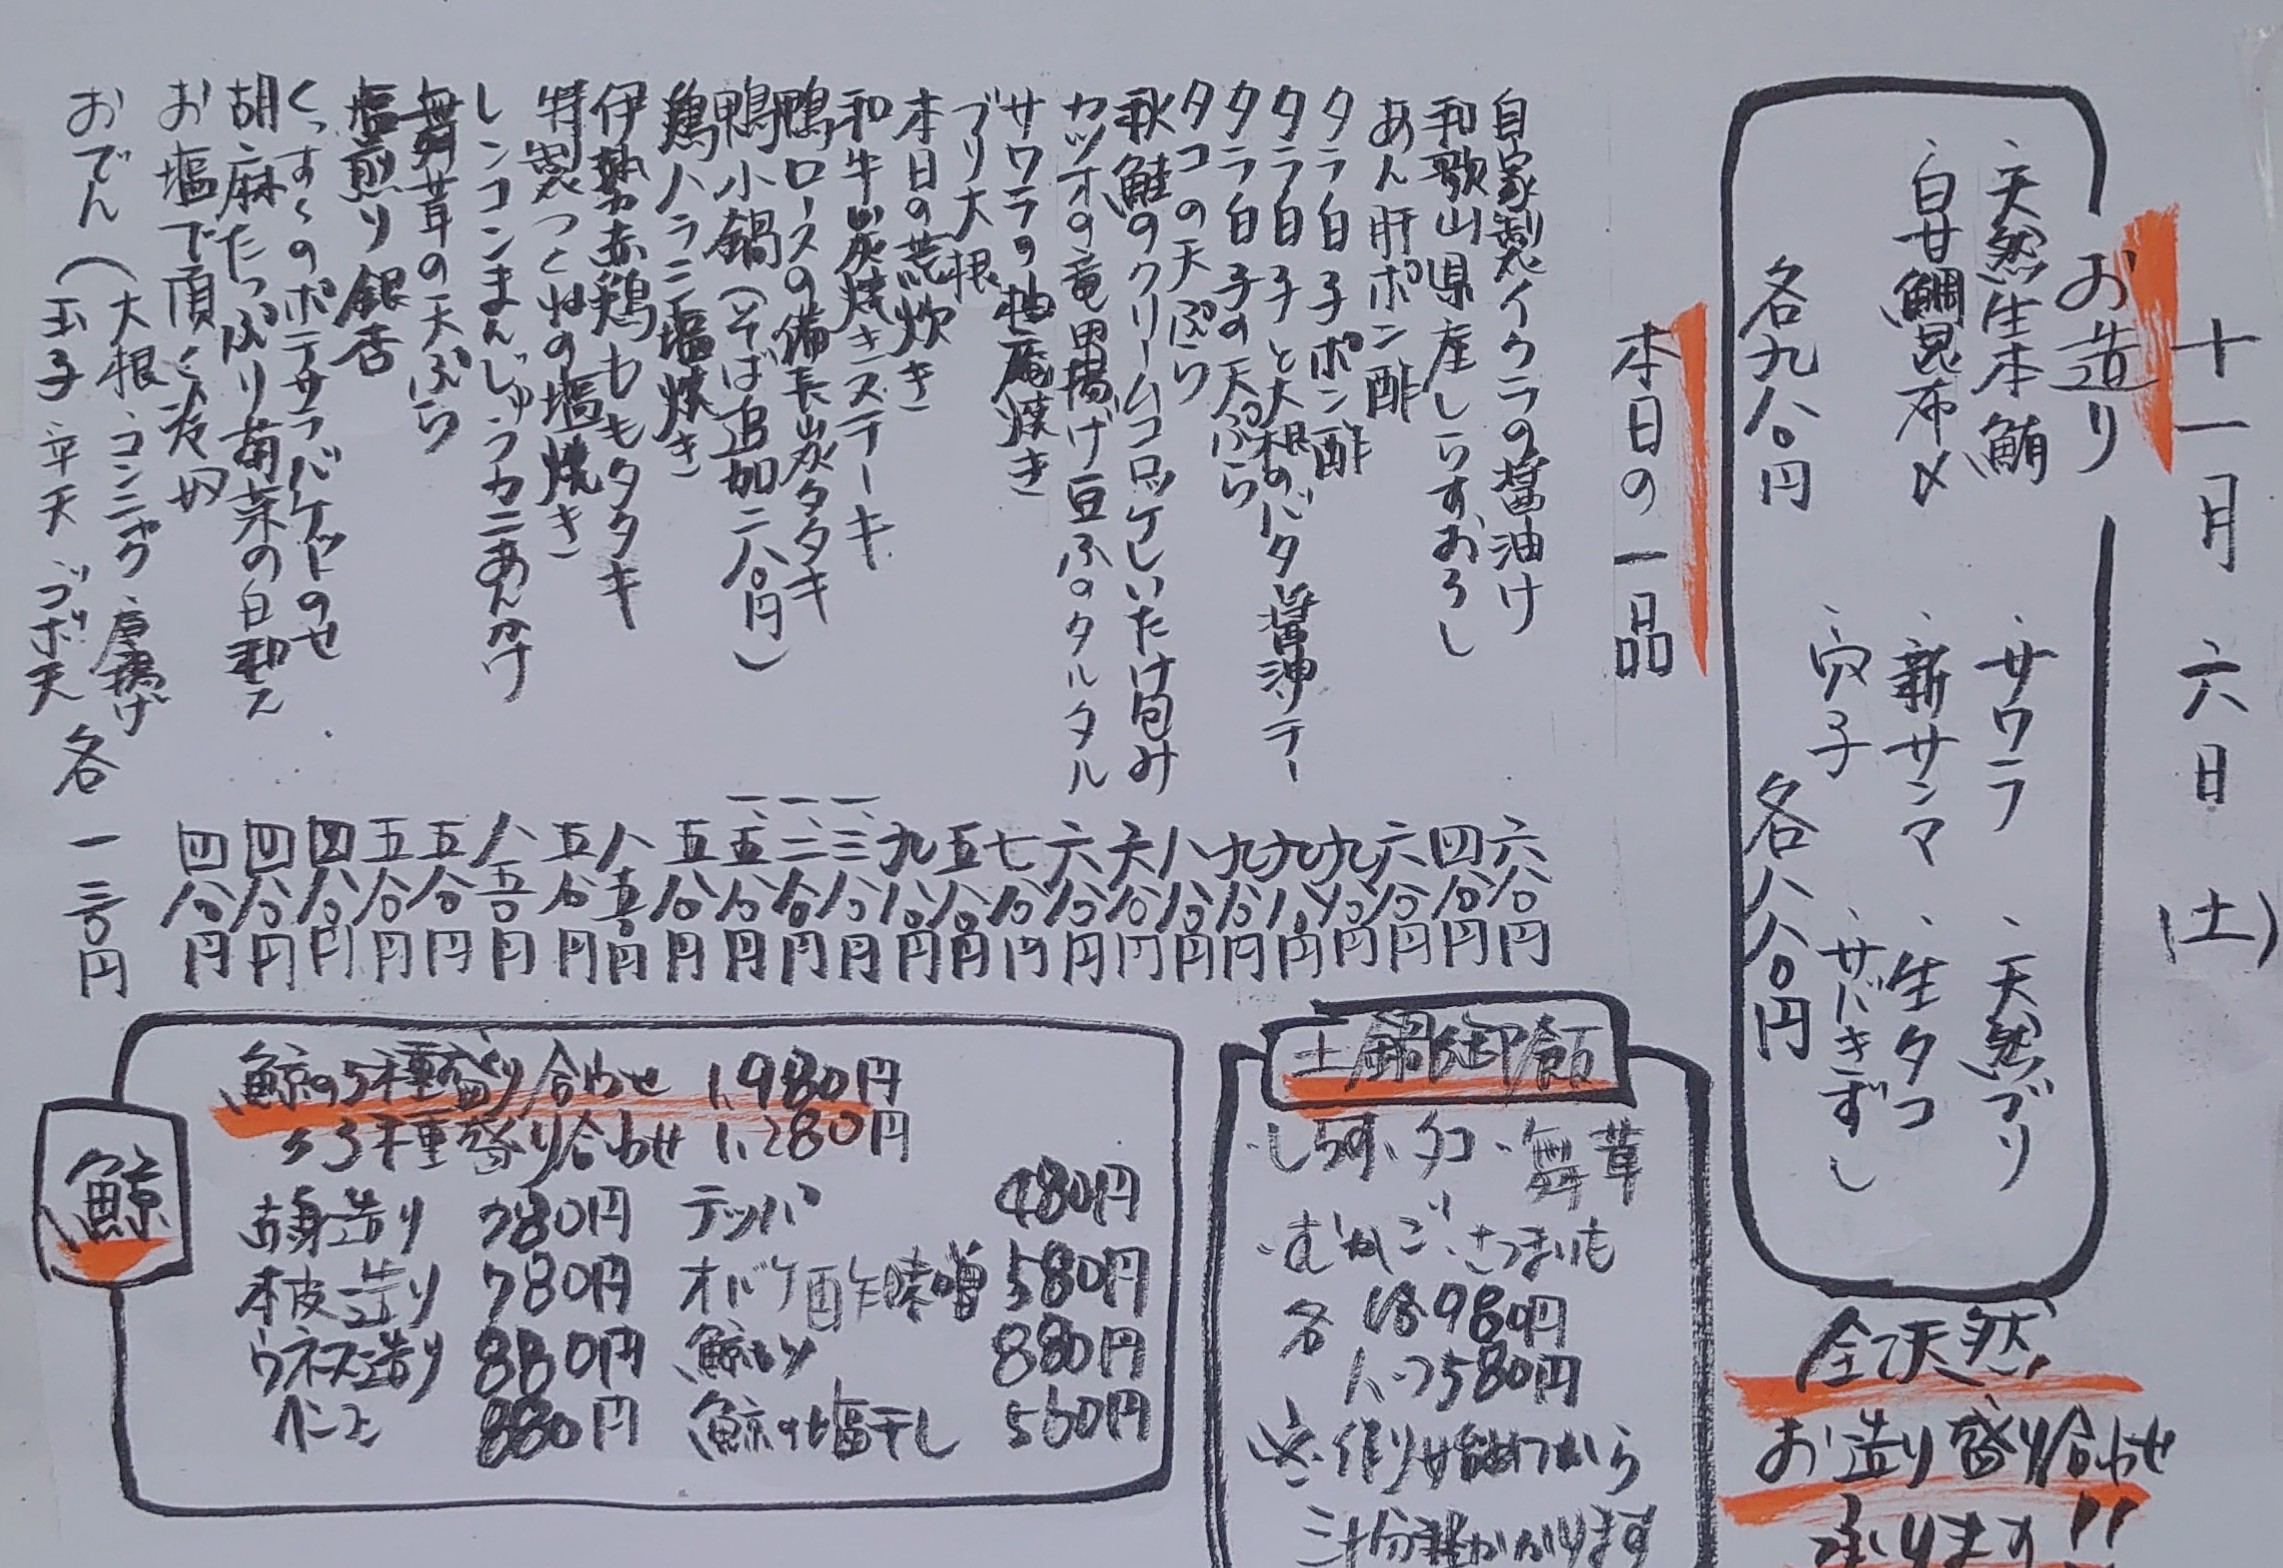 十一月六日(土)
お造り
・天然生本鮪
・白甘鯛昆布〆
各九八〇円
・サワラ
・天然ブリ
・新サンマ
・生タコ
・穴子
・サバきずし
各八八〇円
全て天然
お造り盛り合わせ
承ります!!
本日の一品
自家製イクラの醤油け 六八〇円
和歌山県産しらすおろし 四八〇円
あん肝ポン酢 六八〇円
タラ白子ポン酢 九八〇円
タラ白子と大根のバタ醤油ソテー 九八〇円
タラ白子の天ぷら 九八〇円
タコの天ぷら 八八〇円
秋鮭のクリームコロッケしいたけ包み 六八〇円
カツオの竜田揚げ豆ふのタルタル 六八〇円
サワラの柚庵焼き 七八〇円
ブリ大根 五八〇円
本日の荒炊き 九八〇円
和牛炭焼きステーキ 一、三八〇円
鴨ロースの備長炭タタキ 一、二八〇円
鴨小鍋(そば追加二八〇円) 一、五八〇円
鶏ハラミ塩焼き 五八〇円
伊勢赤鶏ももタタキ 八五〇円
特製つくねの塩焼き 五八〇円
レンコンまんじゅうカニあんかけ 八五〇円
舞茸の天ぷら 五八〇円
塩煎り銀杏 五八〇円
くっすくのポテサラバケットのせ 四八〇円
胡麻たっぷり菊菜の白和え 四八〇円
お塩で頂く冷奴 四八〇円
おでん(大根・コンニャク・厚揚げ
玉子 平天 ゴボ天 各一三〇円
土鍋御飯
・しらす・タコ・舞茸
・むかご・さつまいも
各 1合980円
ハーフ580円
※作り始めてから
三十分程かかります
鯨
鯨の5種盛り合わせ 1,980円
〃3種盛り合わせ 1,280円
赤身造り 780円 テッパ 480円
本皮造り 780円 オバケ酢味噌 580円
ウネス造り 880円 鯨カツ 880円
ベーコン 880円 鯨の塩干し 580円